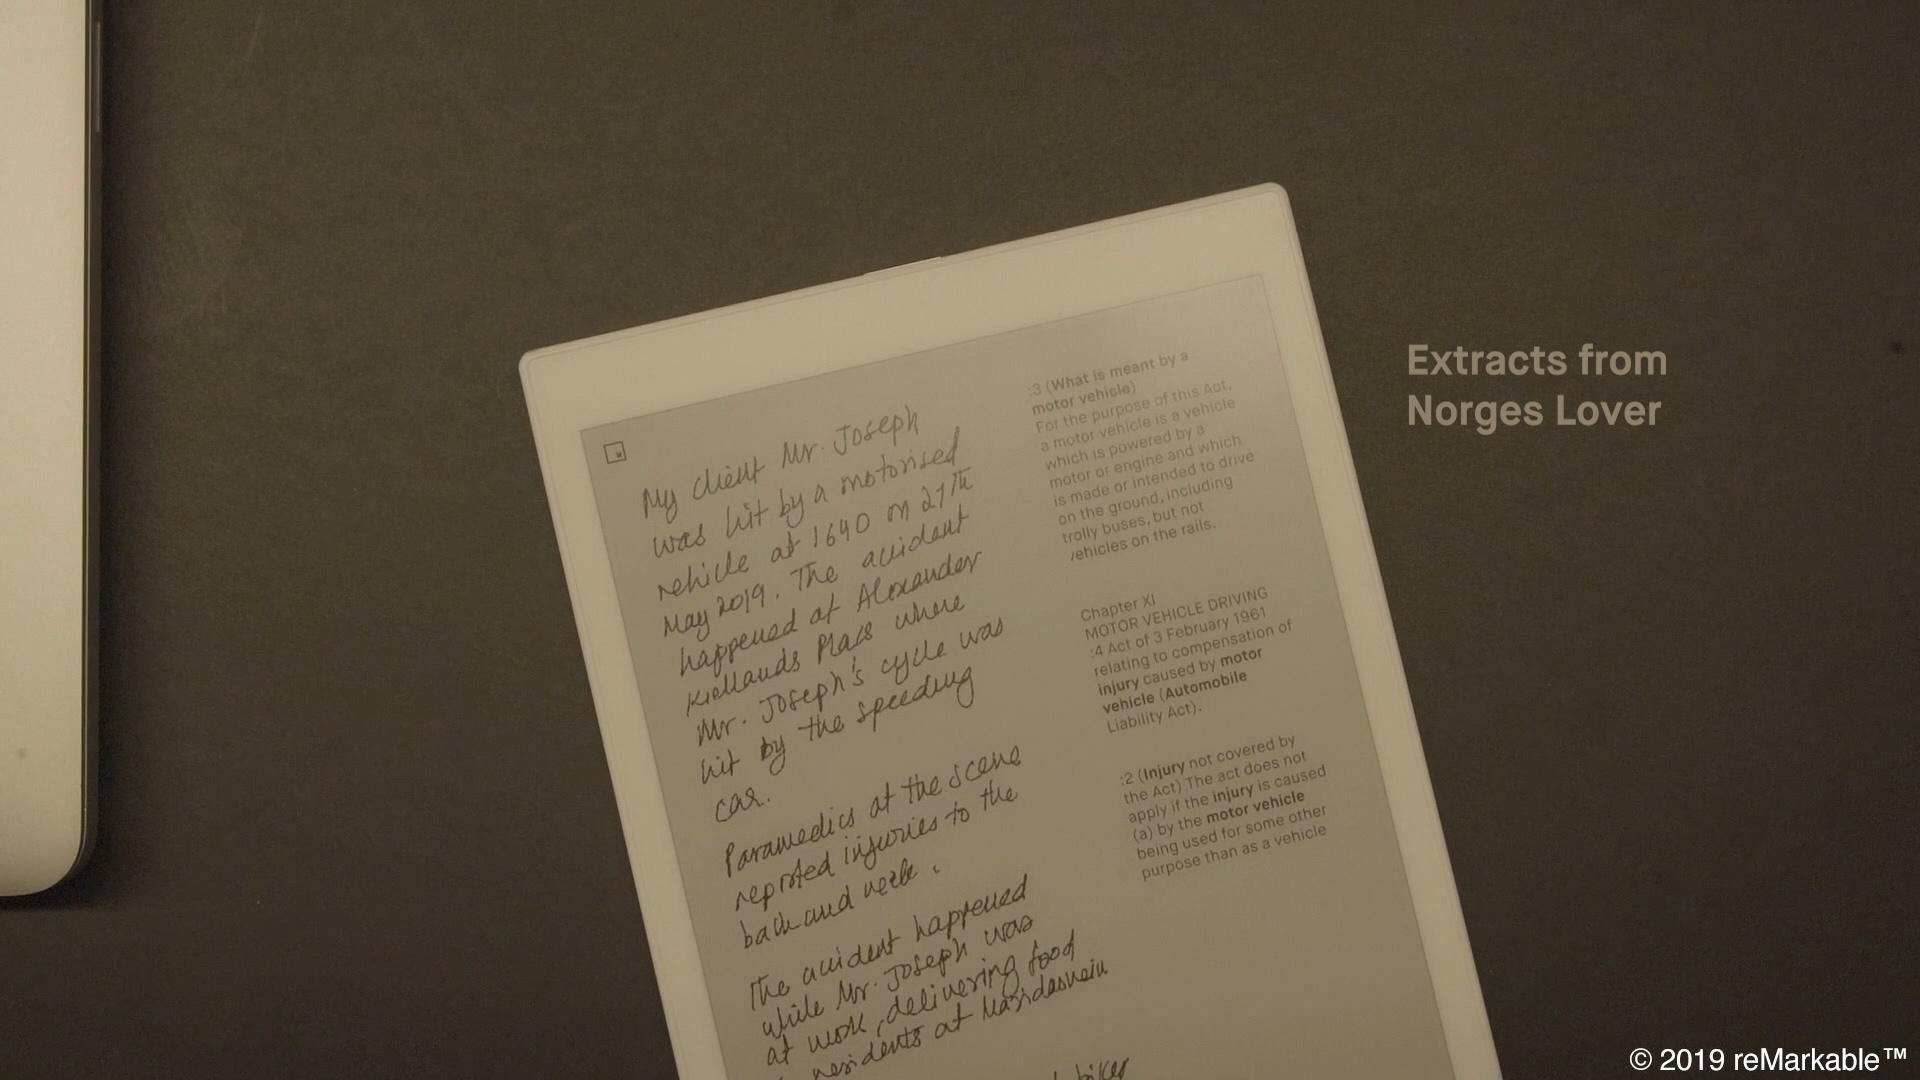 My client Mr. Joseph
was hit by a motorised
vehicle at 1640 on 27th
May 2019. The accident
happened at Alexander
Kiellands Place where
Mr. Joseph's cycle was
hit by the speeding
car.
Paramedics at the scene
reported injuries to the
back and neck.
The accident happened
while Mr. Joseph was
at work, delivering food
residents at
biker
:3 (What is meant by a
motor vehicle)
For the purpose of this Act,
a motor vehicle is a vehicle
which is powered by a
motor or engine and which
is made or intended to drive
on the ground, including
trolly buses, but not
vehicles on the rails.
Chapter XI
MOTOR VEHICLE DRIVING
:4 Act of 3 February 1961
relating to compensation of
injury caused by motor
vehicle (Automobile
Liability Act).
:2 (Injury not covered by
the Act) The act does not
apply if the injury is caused
(a) by the motor vehicle
being used for some other
purpose than as a vehicle
Extracts from
Norges Lover
© 2019 reMarkable™